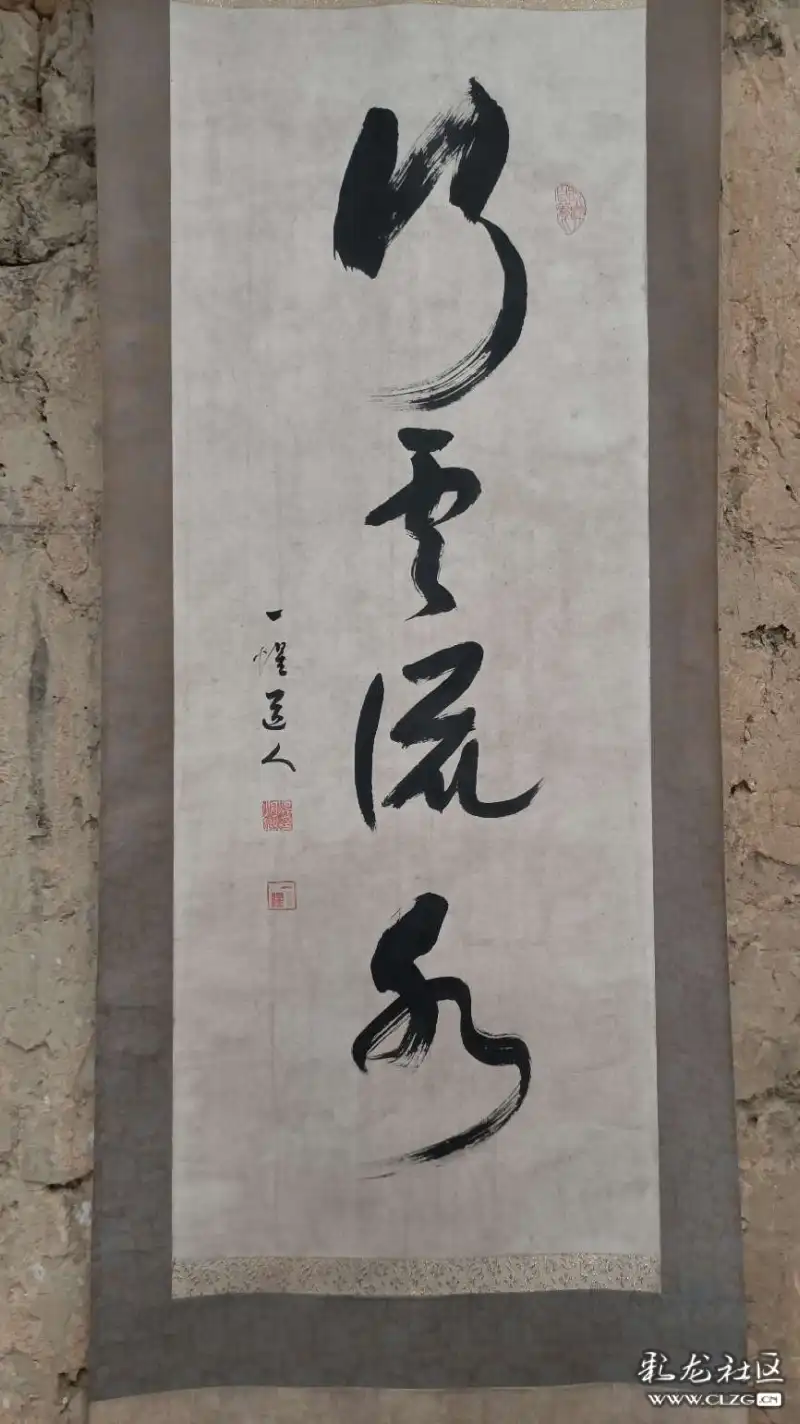 行云流水
一惺道人
彩龙社区
WWW.CLZG.CN